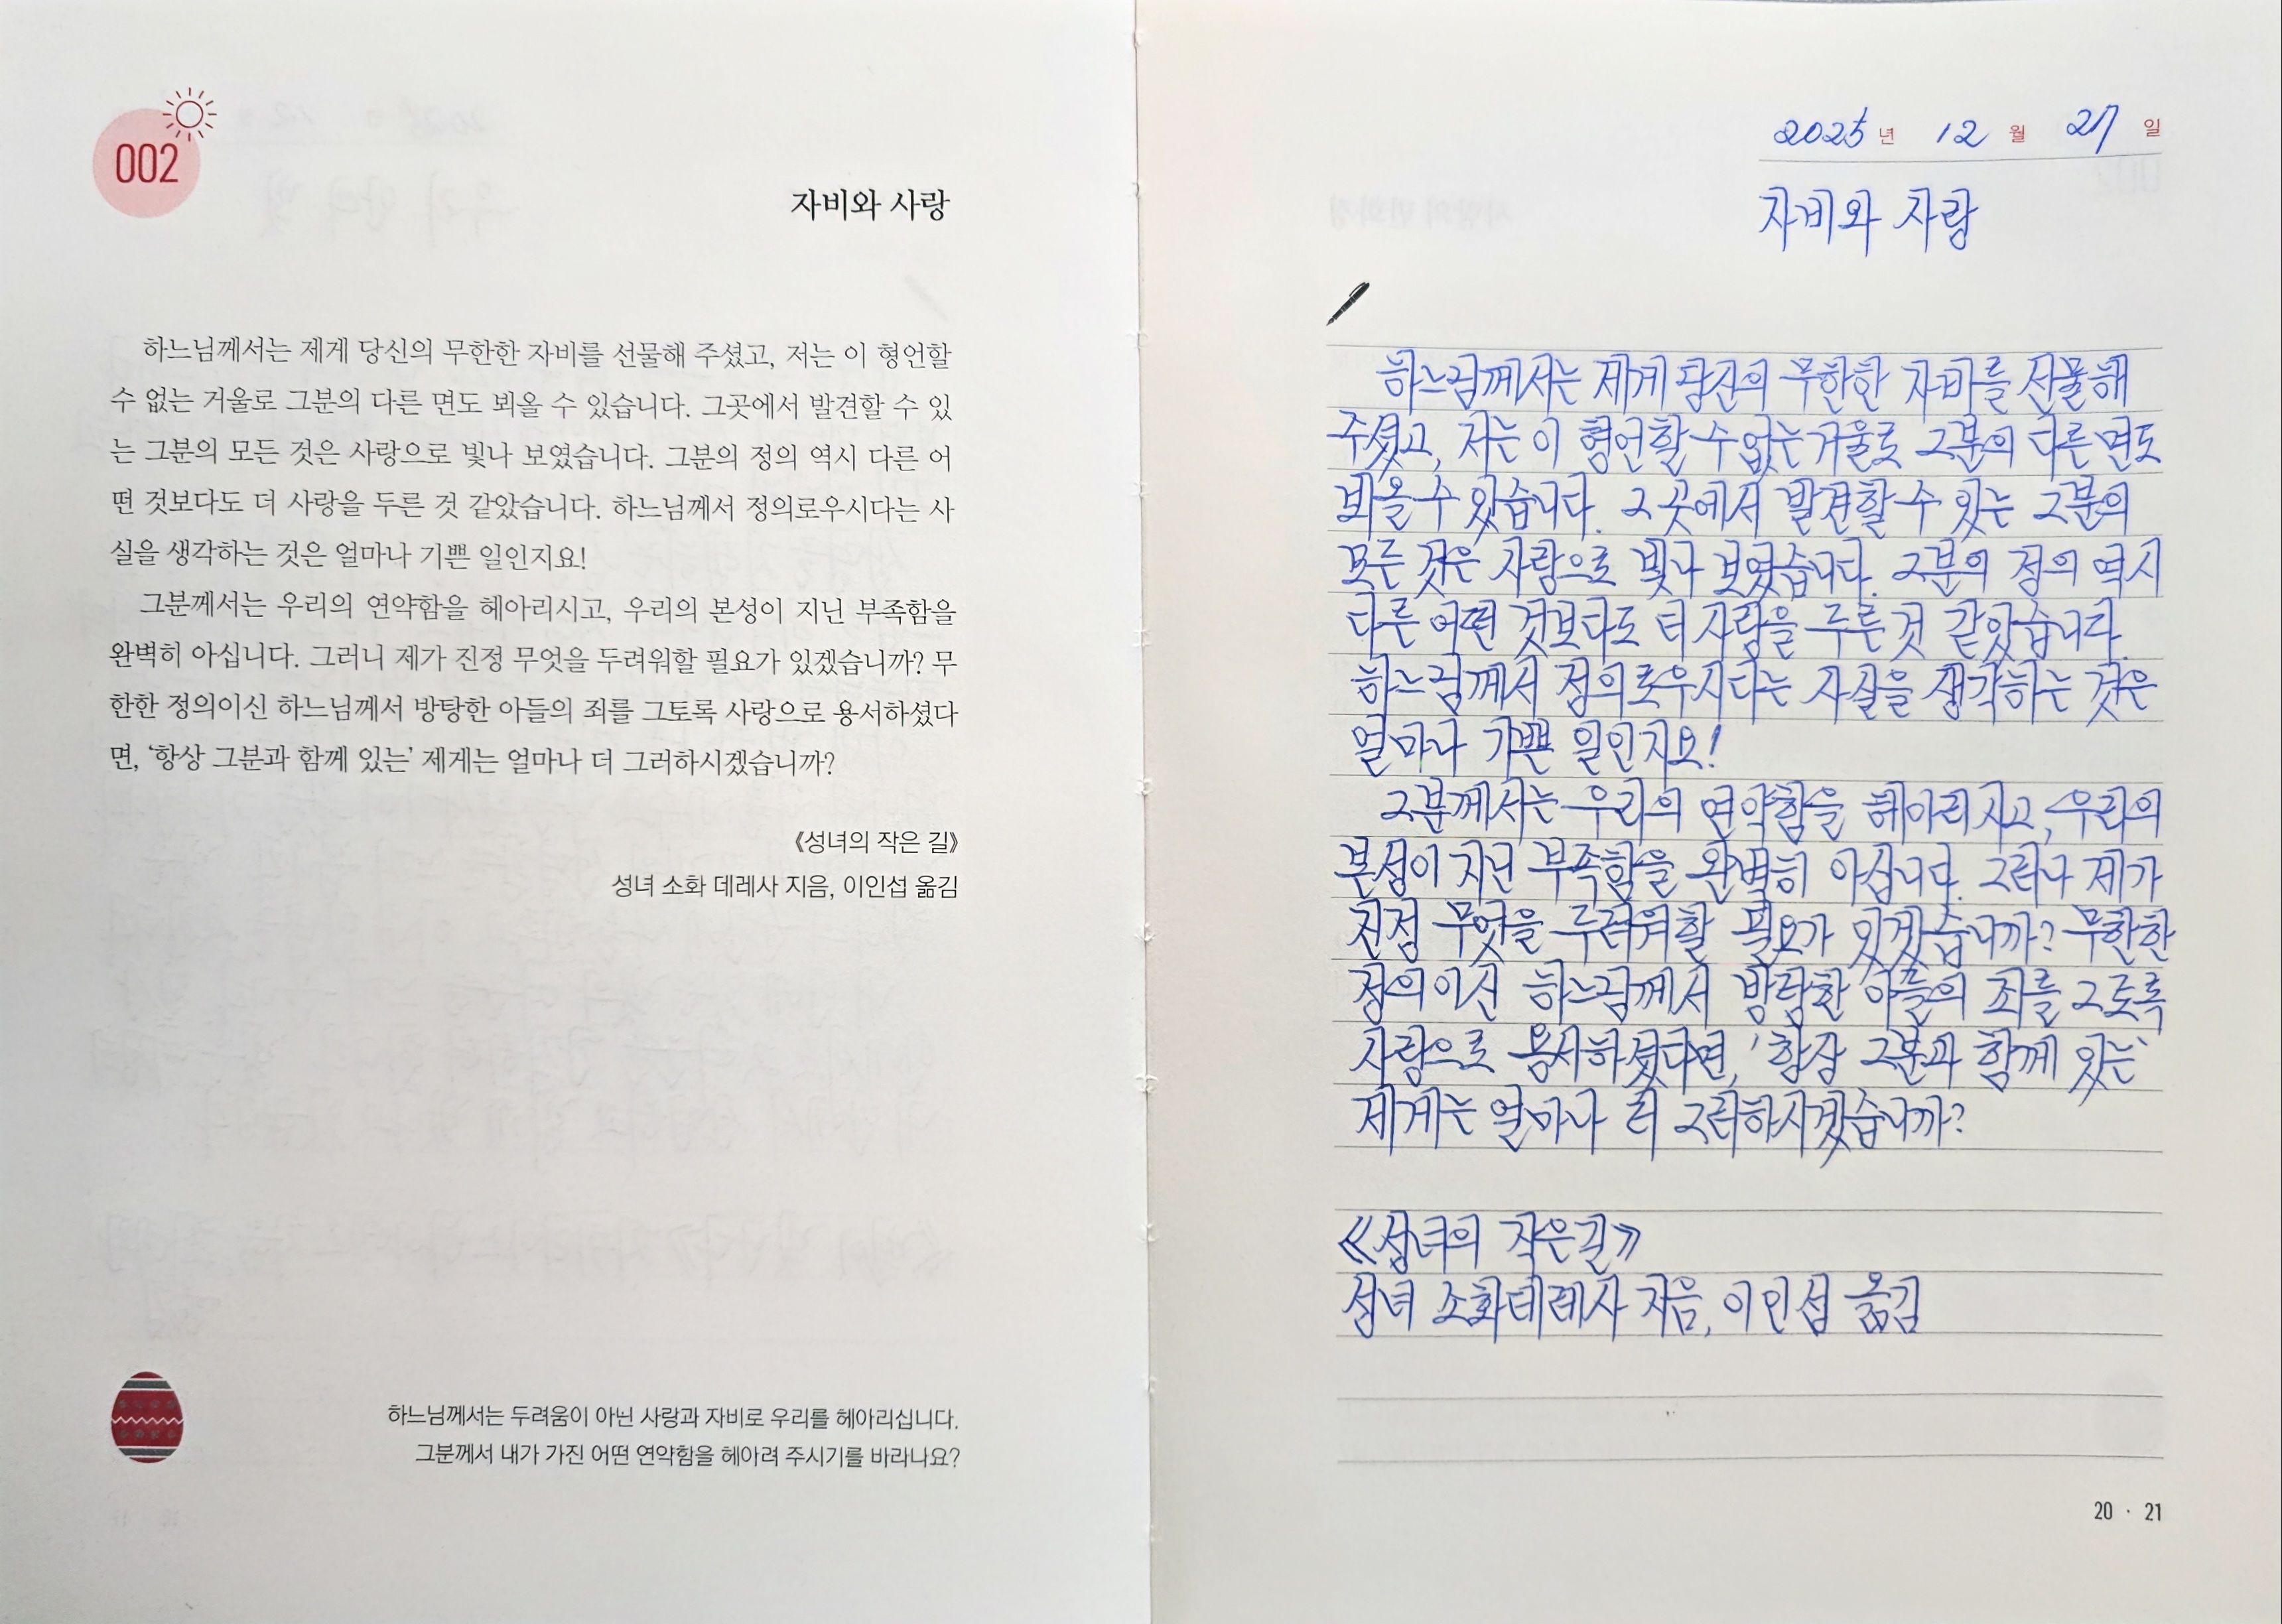 002
자비와 사랑
하느님께서는 제게 당신의 무한한 자비를 선물해 주셨고, 저는 이 형언할
수 없는 거울로 그분의 다른 면도 뵈올 수 있습니다. 그곳에서 발견할 수 있
는 그분의 모든 것은 사랑으로 빛나 보였습니다. 그분의 정의 역시 다른 어
떤 것보다도 더 사랑을 두른 것 같았습니다. 하느님께서 정의로우시다는 사
실을 생각하는 것은 얼마나 기쁜 일인지요!
그분께서는 우리의 연약함을 헤아리시고, 우리의 본성이 지닌 부족함을
완벽히 아십니다. 그러니 제가 진정 무엇을 두려워할 필요가 있겠습니까? 무
한한 정의이신 하느님께서 방탕한 아들의 죄를 그토록 사랑으로 용서하셨다
면, ‘항상 그분과 함께 있는’ 제게는 얼마나 더 그러하시겠습니까?
《성녀의 작은 길》
성녀 소화 데레사 지음, 이인섭 옮김
하느님께서는 두려움이 아닌 사랑과 자비로 우리를 헤아리십니다.
그분께서 내가 가진 어떤 연약함을 헤아려 주시기를 바라나요?
2025년 12월 27일
자비와 사랑
하느님께서는 제게 당신의 무한한 자비를 선물해
주셨고, 저는 이 형언할 수 없는 거울로 그분의 다른 면도
뵈올 수 있습니다. 그곳에서 발견할 수 있는 그분의
모든 것은 사랑으로 빛나 보였습니다. 그분의 정의 역시
다른 어떤 것보다도 더 사랑을 두른 것 같았습니다.
하느님께서 정의로우시다는 사실을 생각하는 것은
얼마나 기쁜 일인지요!
그분께서는 우리의 연약함을 헤아리시고, 우리의
본성이 지닌 부족함을 완벽히 아십니다. 그러나 제가
진정 무엇을 두려워할 필요가 있겠습니까? 무한한
정의이신 하느님께서 방탕한 아들의 죄를 그토록
사랑으로 용서하셨다면, '항상 그분과 함께 있는'
제게는 얼마나 더 그러하시겠습니까?
《성녀의 작은길》
성녀 소화데레사 지음, 이인섭 옮김
20 · 21